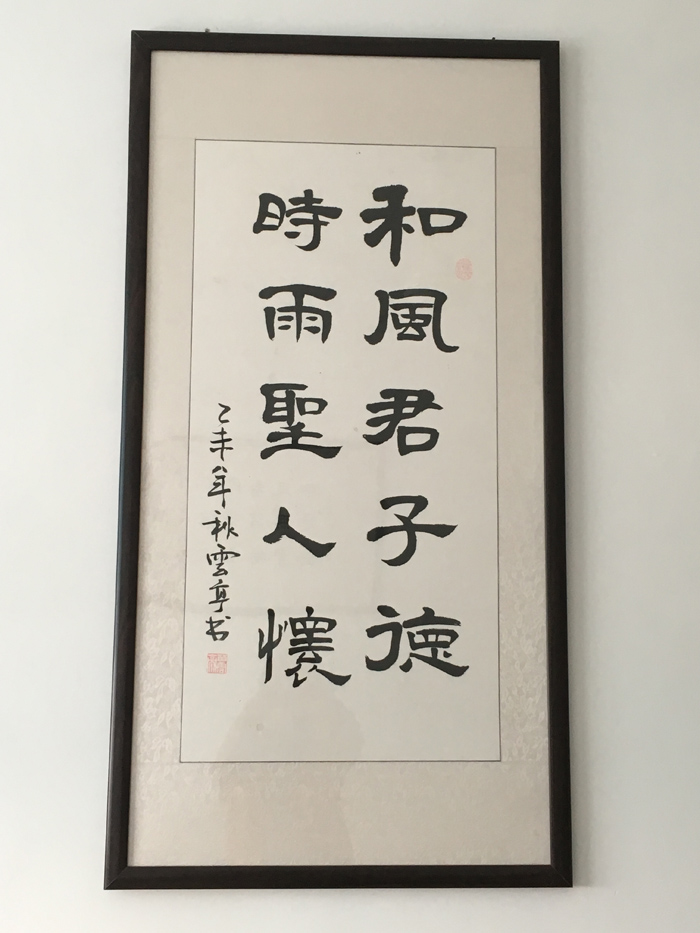 和風君子德
時雨聖人懷
乙未年秋雲亭书